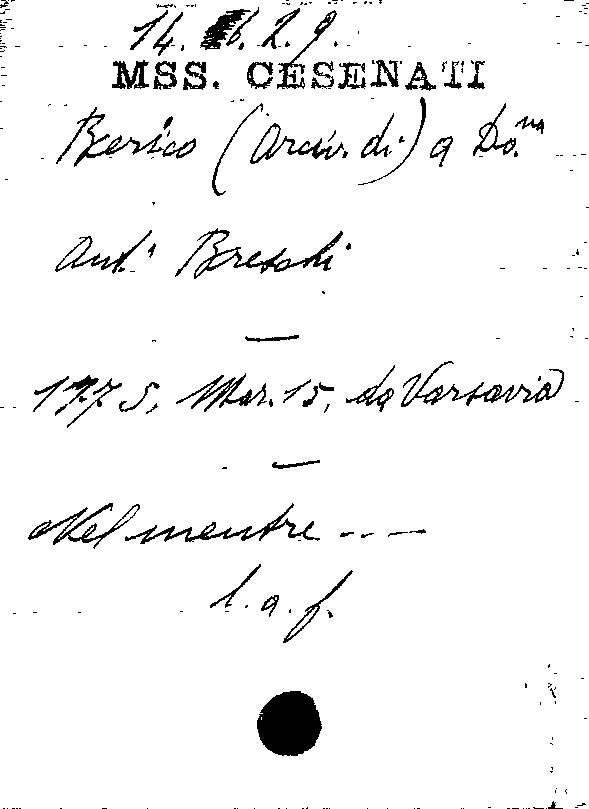 14. 6. 2. 9.
MSS. CESENATI
Berico (Arciv. di) a Do.na
Ant.a Breschi
—
1775, Mar. 15, da Varsavia
—
Nel mentre ---
l. a. f.